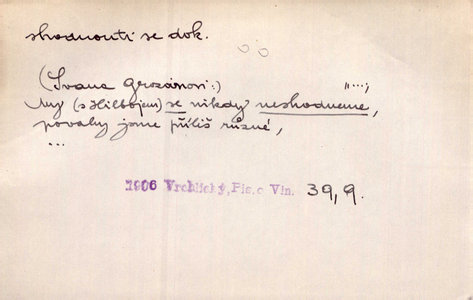 shodnouti se dok.
(Ivana Grozánovi:) "...,
My (s Hilbbojem) se nikdy neshodneme,
povahy jsme příliš různé,
...
1906 Vrchlický, Pís. o Vin. 39, 9.